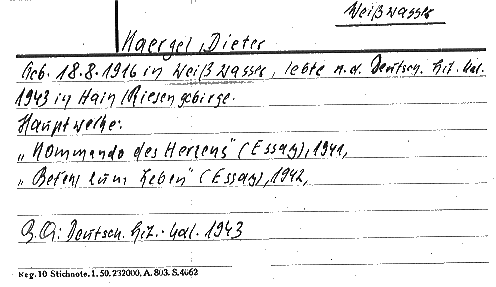 Weißwasser
Naergel, Dieter
Geb. 18.8.1916 in Weißwasser, lebte n.d. Deutsch. Lit. Kal.
1943 in Hain/Riesengebirge.
Hauptwerke:
„Kommando des Herzens" (Essay), 1941,
„Befehl zum Leben" (Essay), 1942,
B.A: Deutsch. Lit.-Kal. 1943
Reg. 10 Stichnote. 1. 50. 232000. A. 803. S. 4662